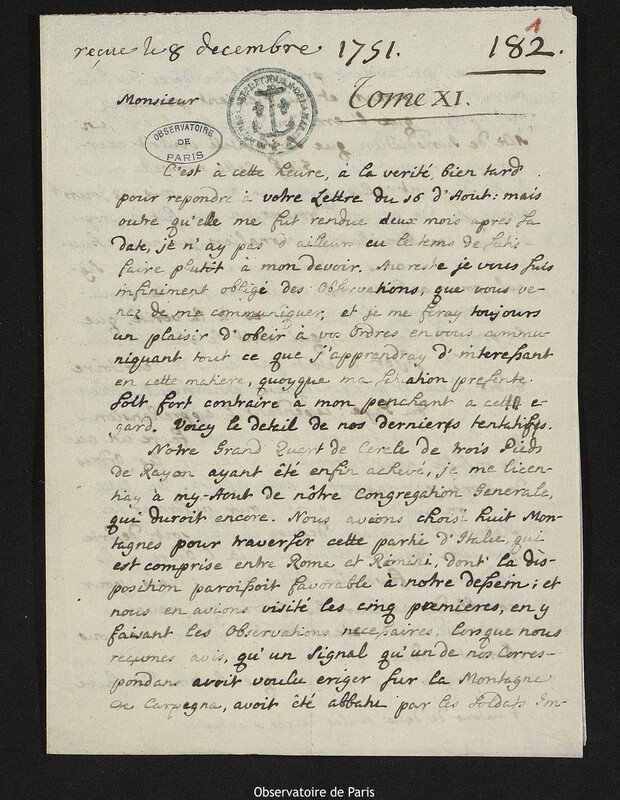 reçue le 8 decembre 1751.
182.
1
Tome XI.
Monsieur
OBSERVATOIRE
DE
PARIS
C'est à cette heure, à la verité, bien tard
pour repondre à vôtre Lettre du 16 d'Aout: mais
outre qu'elle me fut rendue deux mois après sa
date, je n'ay pas d'ailleur eu le tems de satis-
faire plutôt à mon devoir. Au reste je vous suis
infiniment obligé des Observations, que vous ve-
nez de me communiquer, et je me feray toujours
un plaisir d'obeir à vos Ordres en vous commu-
niquant tout ce que j'apprendray d'interessant
en cette matiere, quoyque ma situation presente
soit fort contraire à mon penchant a cet e-
gard. Voicy le detail de nos dernieres tentatifs.
Notre Grand Quart de Cercle de trois Pieds
de Rayon ayant été enfin achevé, je me licen-
tiay à my-Aout de nôtre Congregation Generale,
qui duroit encore. Nous avions choisi huit Mon-
tagnes pour traverser cette partie d'Italie, qui
est comprise entre Rome et Rimini, dont la dis-
position paroissoit favorable à notre dessein; et
nous en avions visité les cinq premieres, en y
faisant les Observations necessaires, lorsque nous
reçumes avis, qu'un Signal qu'un de nos Corres-
pondans avoit voulu eriger sur la Montagne
de Carpegna, avoit été abbatu par les Soldats Im-
Observatoire de Paris